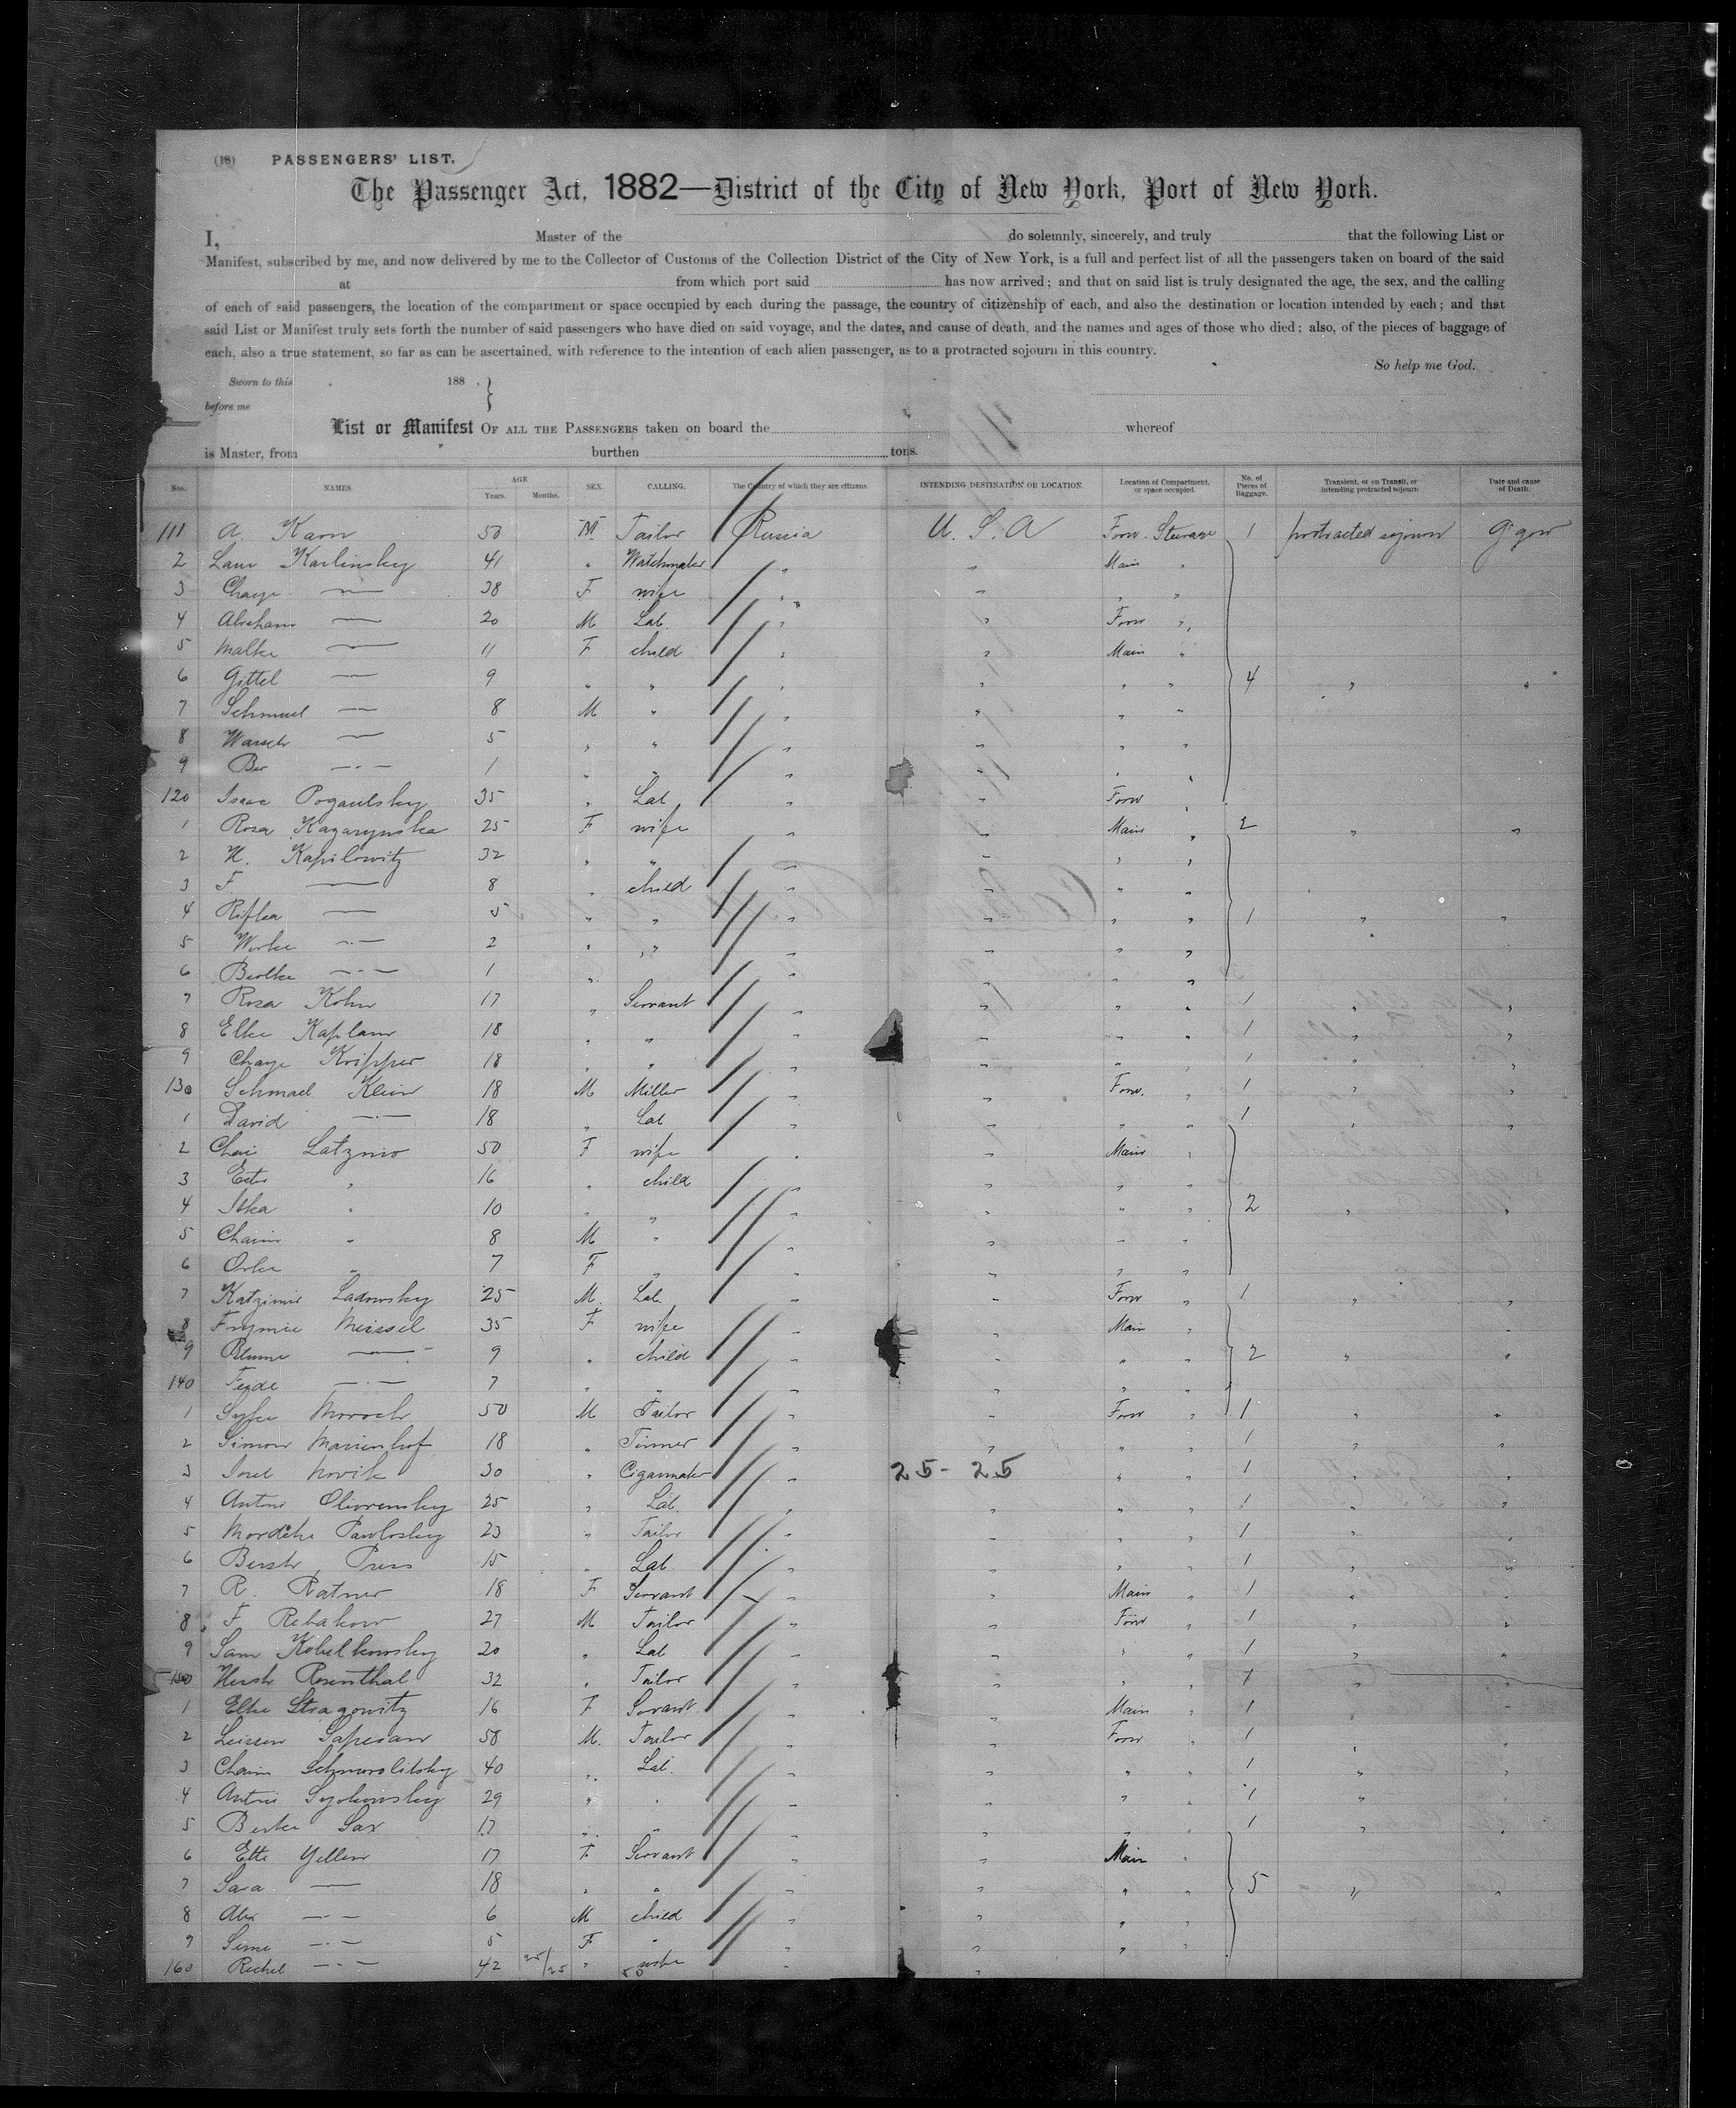 (18) PASSENGERS' LIST.
The Passenger Act, 1882—District of the City of New York, Port of New York.
I, Master of the do solemnly, sincerely, and truly that the following List or
Manifest, subscribed by me, and now delivered by me to the Collector of Customs of the Collection District of the City of New York, is a full and perfect list of all the passengers taken on board of the said
at from which port said has now arrived; and that on said list is truly designated the age, the sex, and the calling
of each of said passengers, the location of the compartment or space occupied by each during the passage, the country of citizenship of each, and also the destination or location intended by each; and that
said List or Manifest truly sets forth the number of said passengers who have died on said voyage, and the dates, and cause of death, and the names and ages of those who died; also, of the pieces of baggage of
each, also a true statement, so far as can be ascertained, with reference to the intention of each alien passenger, as to a protracted sojourn in this country.
So help me God.
Sworn to this 188 , }
before me
List or Manifest OF ALL THE PASSENGERS taken on board the whereof
is Master, from burthen tons.
Nos. NAMES. AGE Years. Months. SEX. CALLING. The Country of which they are citizens. INTENDING DESTINATION OR LOCATION. Location of Compartment, or space occupied. No. of Pieces of Baggage. Transient, or on Transit, or intending protracted sojourn. Date and cause of Death.
111 A. Karn 50 M Tailor Russia U. S. A Forw. Steerage 1 protracted sojourn
2 Karlinsky 41 " Watchmaker " " Main "
3 Chaye — 38 F wife " " " "
4 Abraham — 20 M Lab. " " Forw "
5 Malke — 11 F child " " Main "
6 Gittel — 9 " " " " " " 4 " "
7 Schmuel — 8 M " " " " "
8 — 5 " " " " " "
9 Ber — 1 " " " " " "
120 Isaac 35 " Lab " " Forw "
1 Rosa Kazarynska 25 F wife " " Main " 2 " "
2 Kapilowitz 32 " " " " " "
3 F. — 8 " child " " " "
4 Rifka — 5 " " " " " " 1 " "
5 — 2 " " " " " "
6 — 1 " " " " "
7 Rosa Kohn 17 " Servant " " " " 1 " "
8 Elke Kaplan 18 " " " " " " 1 " "
9 Chaye Kripper 18 " " " " " " 1 " "
130 Schmael Klein 18 M Miller " " Forw. " 1 " "
1 David — 18 " Lab " " " " 1 " "
2 Latzmo 50 F wife " " Main "
3 Ester " 16 " child " " " "
4 Itka " 10 " " " " " " 2 " "
5 Chaim " 8 M " " " " "
6 " 7 F " " " " "
7 Ladowsky 25 M. Lab " " Forw " 1 " "
8 Meissel 35 F wife " " Main "
9 Blume — 9 " child " " " " 2 " "
140 Feide — 7 " " " " " "
1 50 M Tailor " " Forw " 1 " "
2 Simon Marienhof 18 " Tinner " " " " 1 " "
3 Novik 30 " Cigarmaker " 25- 25 " " 1 " "
4 25 " Lab. " " " " 1 " "
5 23 " Tailor " " " " 1 " "
6 15 " Lab. " " " " 1 " "
7 R. Ratner 18 F Servant " " Main " 1 " "
8 F Rebakow 27 M Tailor " " Forw " 1 " "
9 Sam 20 " Lab " " " " 1 " "
150 Rosenthal 32 " Tailor " " " " 1 " "
1 Elke 16 F Servant " " Main " 1 " "
2 Tailor M. " " Forw " 1 " "
3 Chaim 40 " Lab. " " " " 1 " "
4 29 " " " " " " 1 " "
5 17 " " " " " " 1 " "
6 Ette Yellen 17 F Servant " " Main "
7 Sara — 18 " " " " " " 5 " "
8 — 6 M child " " " "
9 — 5 F " " " " "
160 Rechel — 42 25/25 " wife " "